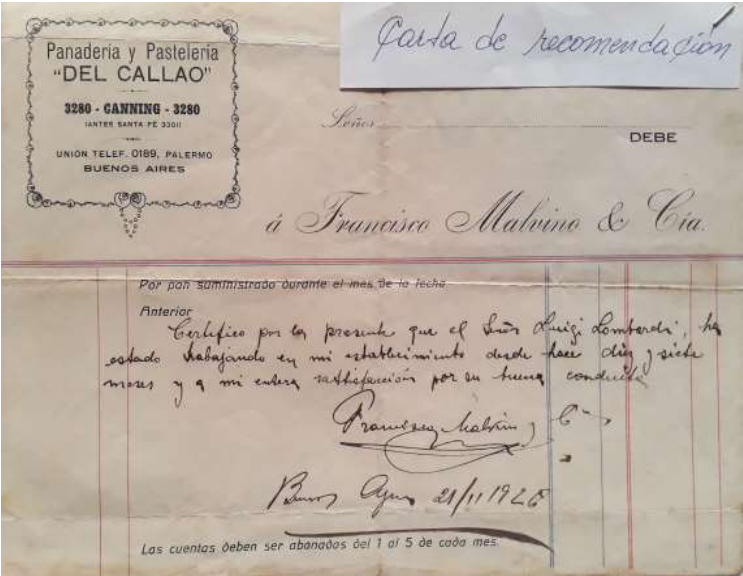 Carta de recomendación
Panadería y Pastelería
"DEL CALLAO"
3280 - CANNING - 3280
(ANTES SANTA FÉ 3301)
UNIÓN TELEF. 0189, PALERMO
BUENOS AIRES
Señor
DEBE
á Francisco Malvino & Cía.
Por pan suministrado durante el mes de la fecha
Anterior
Certifico por la presente que el Señor Luigi Lombardi, ha
estado trabajando en mi establecimiento desde hace diez y siete
meses y a mi entera satisfacción por su buena conducta
Francisco Malvino y C
Buenos Ayres 21/11 1926
Las cuentas deben ser abonadas del 1 al 5 de cada mes.